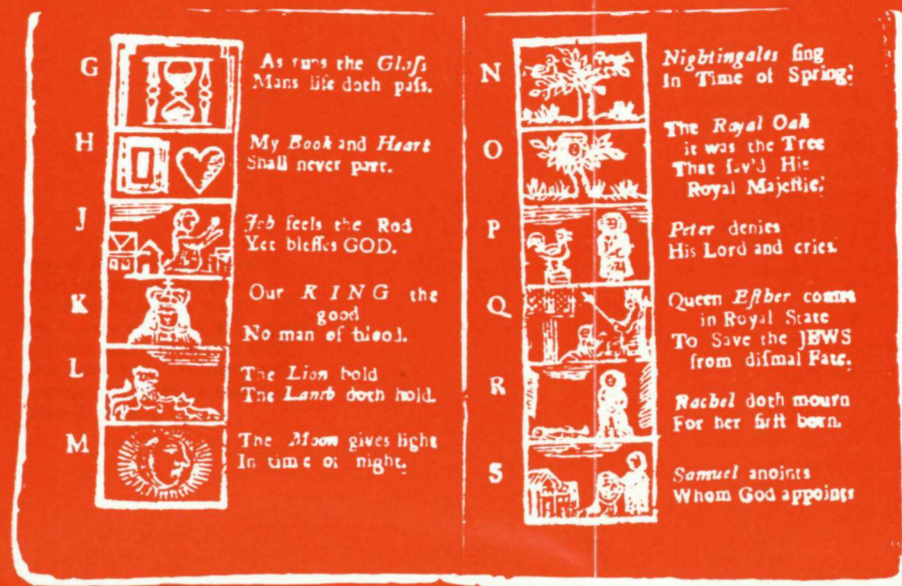 G
As runs the Glaſs
Mans life doth paſs.
H
My Book and Heart
Shall never part.
J
Job feels the Rod
Yet bleſſes GOD.
K
Our KING the
good
No man of blood.
L
The Lion bold
The Lamb doth hold.
M
The Moon gives light
In time of night.
N
Nightingales ſing
In Time of Spring.
O
The Royal Oak
it was the Tree
That ſav'd His
Royal Majeſtie.
P
Peter denies
His Lord and cries.
Q
Queen Eſther comes
in Royal State
To Save the JEWS
from diſmal Fate.
R
Rachel doth mourn
For her firſt born.
S
Samuel anoints
Whom God appoints